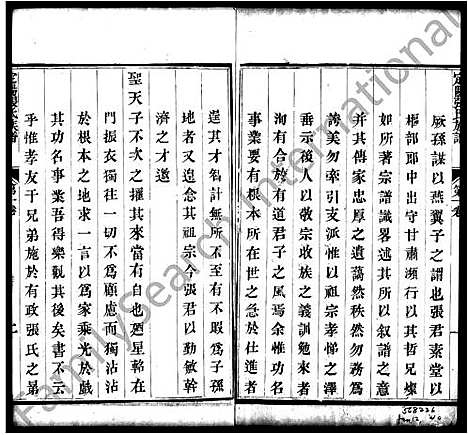 厥孫謀以燕翼子之謂也張君素堂以
樞部郎中出守甘肅瀕行以其哲兄燦
如所著宗譜識畧述其所以叙譜之意
並其傳家忠厚之遺藹然秩然勿為其
誇美勿牽引支派惟以祖宗孝悌之澤
垂示後人以敬宗收族之義訓勉來者
洵有合於有道君子之風焉余惟功名
事業有根有本所在世之急於仕進者
逞其才智計無所不至有不暇為子孫
地者又遑念其祖宗今張君以勤敏幹
濟之才邀
聖天子不次之擢其來當有自也廼星軺在
門振衣獨往一切不為顧慮而獨沾沾
於根本之地求一言以為家乘光於戲
其功名事業吾得樂觀其後矣書云
乎惟孝友于兄弟施於有政張氏之昴
FamilySearch International
568226